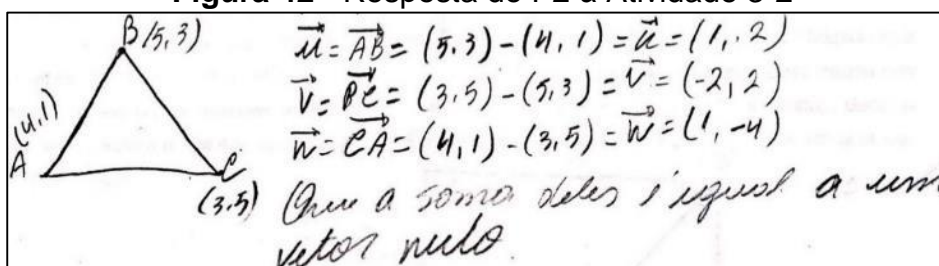 Figura 42 - Resposta de P2 à Atividade 3-2
B(5,3)
(4,1)
A
C
(3,5)
\vec{u} = \vec{AB} = (5,3) - (4,1) = \vec{u} = (1, 2)
\vec{v} = \vec{BC} = (3,5) - (5,3) = \vec{v} = (-2, 2)
\vec{w} = \vec{CA} = (4,1) - (3,5) = \vec{w} = (1, -4)
Que a soma deles é igual a um
vetor nulo.